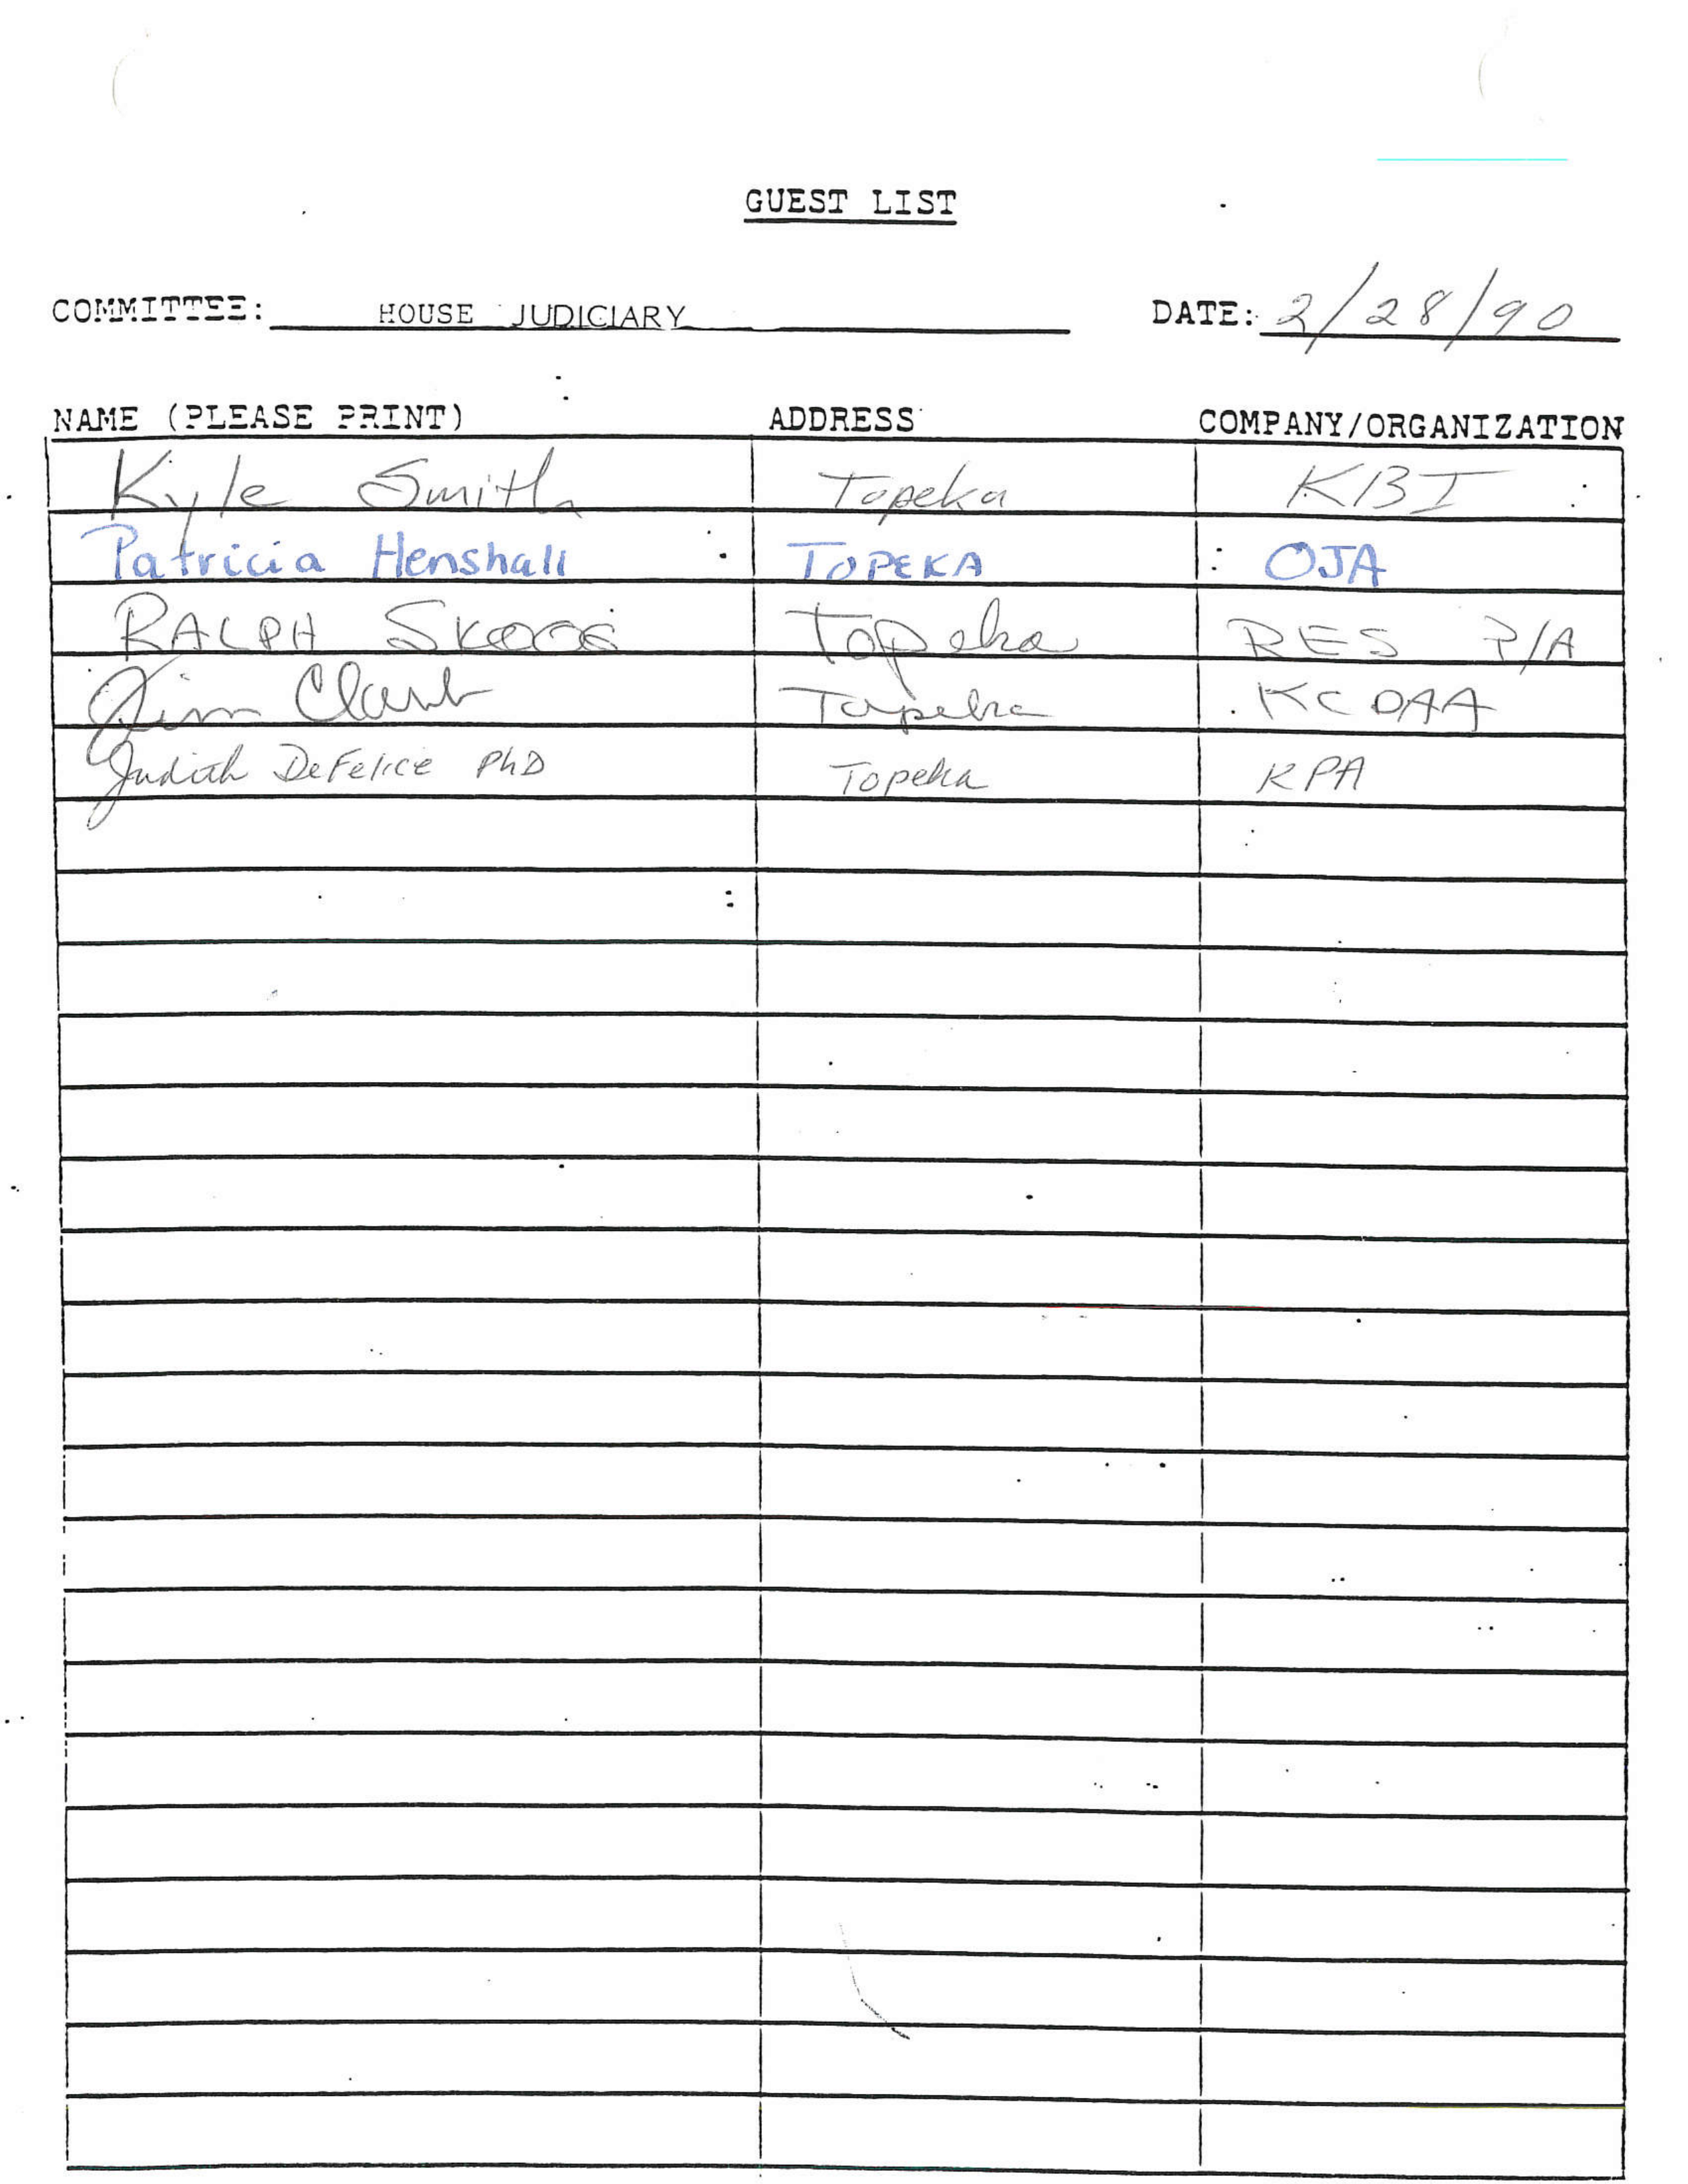 GUEST LIST
COMMITTEE: HOUSE JUDICIARY DATE: 2/28/90
NAME (PLEASE PRINT) ADDRESS COMPANY/ORGANIZATION
Kyle Smith Topeka KBI
Patricia Henshall TOPEKA OJA
RALPH SKOOG Topeka RES P/A
Jim Clark Topeka KCDAA
Judith DeFelice PhD Topeka KPA